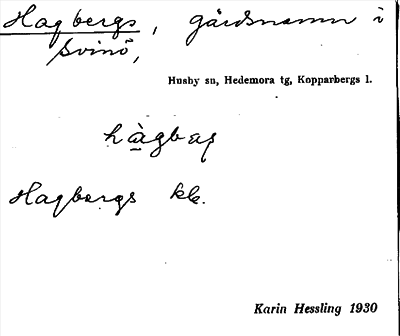 Hagbergs, gårdsnamn i
Svinö,
Husby sn, Hedemora tg, Kopparbergs l.
Hagbergs
Karin Hessling 1930